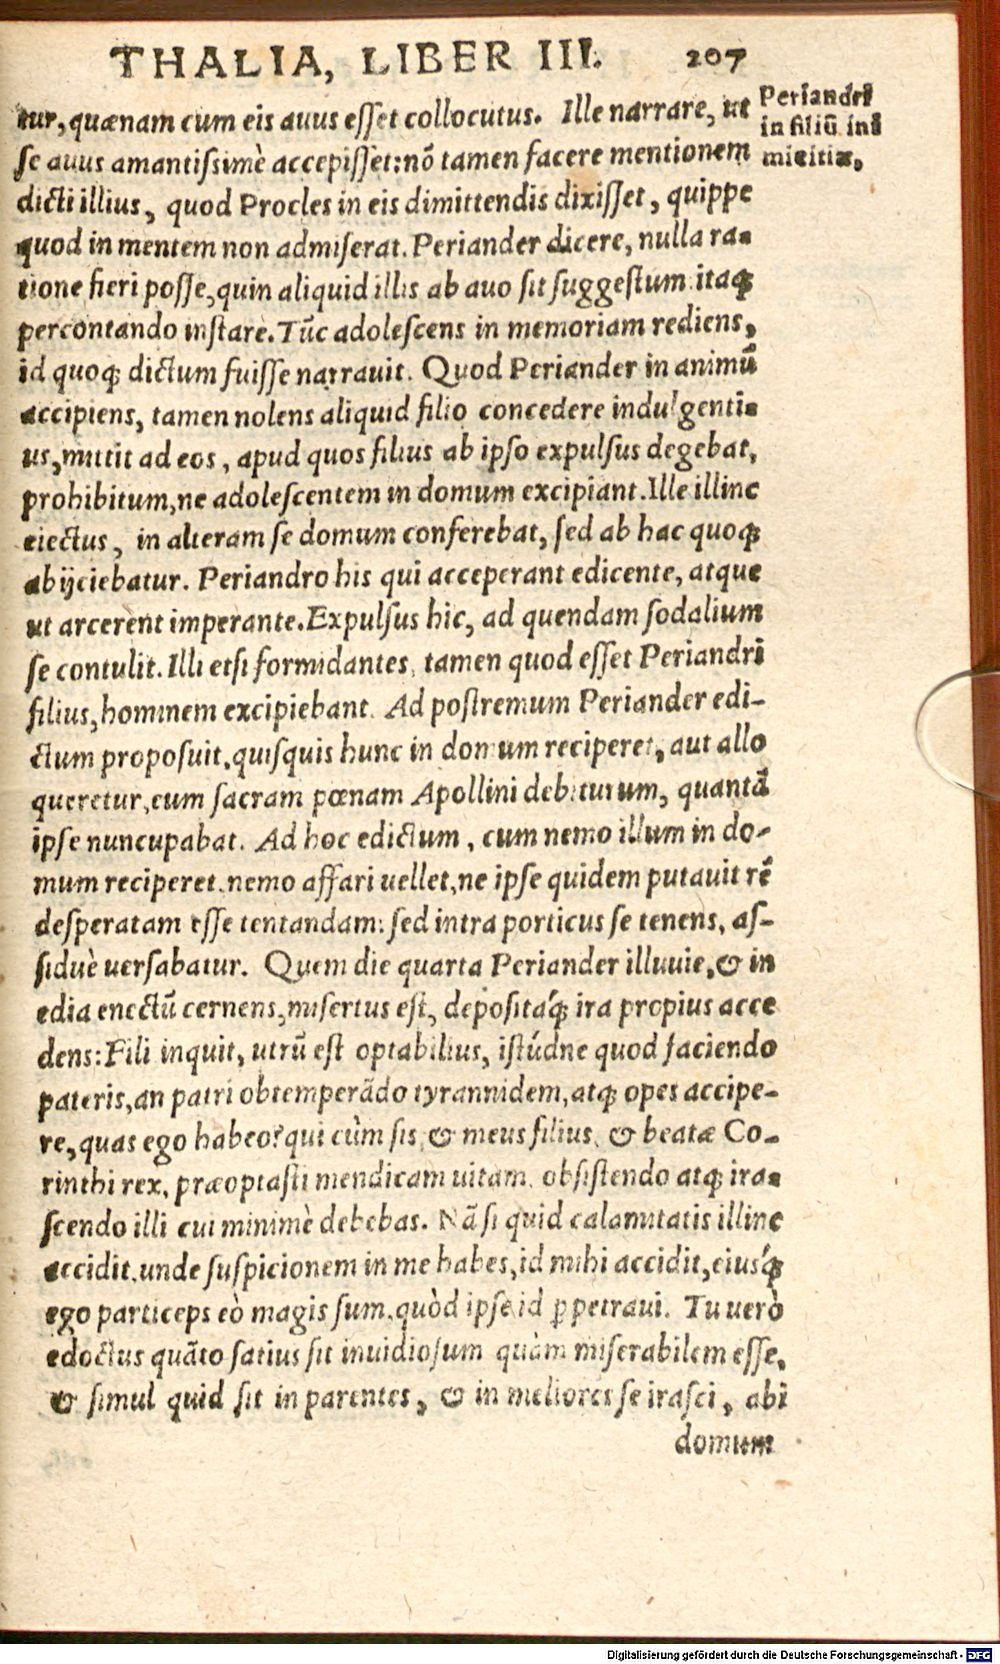 THALIA, LIBER III. 207
tur, quænam cum eis auus esset collocutus. Ille narrare, ut
se auus amantissimè accepisset: nō tamen facere mentionem
dicti illius, quod Procles in eis dimittendis dixisset, quippe
quod in mentem non admiserat. Periander dicere, nulla ra-
tione fieri posse, quin aliquid illis ab auo sit suggestum. itaq;
percontando instare. Tūc adolescens in memoriam rediens,
id quoq; dictum fuisse narrauit. Quod Periander in animū
accipiens, tamen nolens aliquid filio concedere indulgenti-
us, mittit ad eos, apud quos filius ab ipso expulsus degebat,
prohibitum, ne adolescentem in domum excipiant. Ille illinc
eiectus, in alteram se domum conferebat, sed ab hac quoq;
abijciebatur. Periandro his qui acceperant edicente, atque
ut arcerent imperante. Expulsus hic, ad quendam sodalium
se contulit. Illi etsi formidantes, tamen quod esset Periandri
filius, hominem excipiebant. Ad postremum Periander edi-
ctum proposuit, quisquis hunc in domum reciperet, aut allo
queretur, eum sacram pœnam Apollini debiturum, quantā
ipse nuncupabat. Ad hoc edictum, cum nemo illum in do-
mum reciperet, nemo affari uellet, ne ipse quidem putauit rē
desperatam esse tentandam: sed intra porticus se tenens, as-
siduè uersabatur. Quem die quarta Periander illuuie, & in
edia enectū cernens, misertus est, depositáq; ira propius acce
dens: Fili inquit, utrū est optabilius, istúdne quod faciendo
pateris, an patri obtemperādo tyrannidem, atq; opes accipe-
re, quas ego habeo? qui cùm sis & meus filius, & beatæ Co-
rinthi rex, præoptasti mendicam uitam, obsistendo atq; ira-
scendo illi cui minimè debebas. Nā si quid calamitatis illinc
accidit, unde suspicionem in me habes, id mihi accidit, eiusq́;
ego particeps eò magis sum, quòd ipse id ꝑpetraui. Tu uerò
edoctus quāto satius sit inuidiosum quàm miserabilem esse,
& simul quid sit in parentes, & in meliores se irasci, abi
domum
Periandri
in filiū ini
micitiæ,
Digitalisierung gefördert durch die Deutsche Forschungsgemeinschaft - DFG